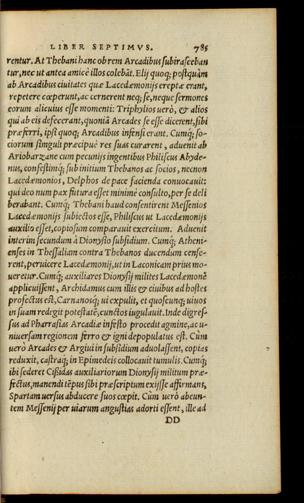 LIBER SEPTIMVS. 785
rentur. At Thebani hanc ob rem Arcadibus subirasceban
tur, nec ut antea amicè illos colebāt. Elij quoq; postquàm
ab Arcadibus ciuitates quæ Lacedæmonijs ereptæ erant,
repetere cœperunt, ac cernerent neq; se, neque sermones
eorum alicuius esse momenti: Triphylios uerò, & alios
qui ab eis defecerant, quoniā Arcades se esse dicerent, sibi
præferri, ipsi quoq; Arcadibus infensi erant. Cumq; so-
ciorum singuli præcipuè res suas curarent, aduenit ab
Ariobarzane cum pecunijs ingentibus Philiscus Abyde-
nus, confestimq; sub initium Thebanos ac socios, necnon
Lacedæmonios, Delphos de pace facienda conuocauit:
qui deo num pax futura esset minimè consulto, per se deli
berabant. Cumq; Thebani haud consentirent Messenios
Lacedæmonijs subiectos esse, Philiscus ut Lacedæmonijs
auxilio esset, copiosum comparauit exercitum. Aduenit
interim secundum à Dionysio subsidium. Cumq; Atheni-
enses in Thessaliam contra Thebanos ducendum cense-
rent, peruicere Lacedæmonij, ut in Laconicam prius mo-
ueretur. Cumq; auxiliares Dionysij milites Lacedæmonē
applicuissent, Archidamus cum illis & ciuibus ad hostes
profectus est, Carnanosq; ui expulit, et quoscunq; uiuos
in suam redegit potestatē, cunctos iugulauit. Inde digres-
sus ad Pharrasias Arcadiæ infesto procedit agmine, ac u-
niuersam regionem ferro & igni depopulatus est. Cùm
uerò Arcades & Argiui in subsidium aduolassent, copias
reduxit, castraq; in Epimedeis collocauit tumulis. Cumq;
ibi sederet Cißidas auxiliariorum Dionysij militum præ-
fectus, manendi tēpus sibi præscriptum exijsse affirmans,
Spartam uersus abducere suos cœpit. Cùm uerò abeun-
tem Messenij per uiarum angustias adorti essent, ille ad
DD